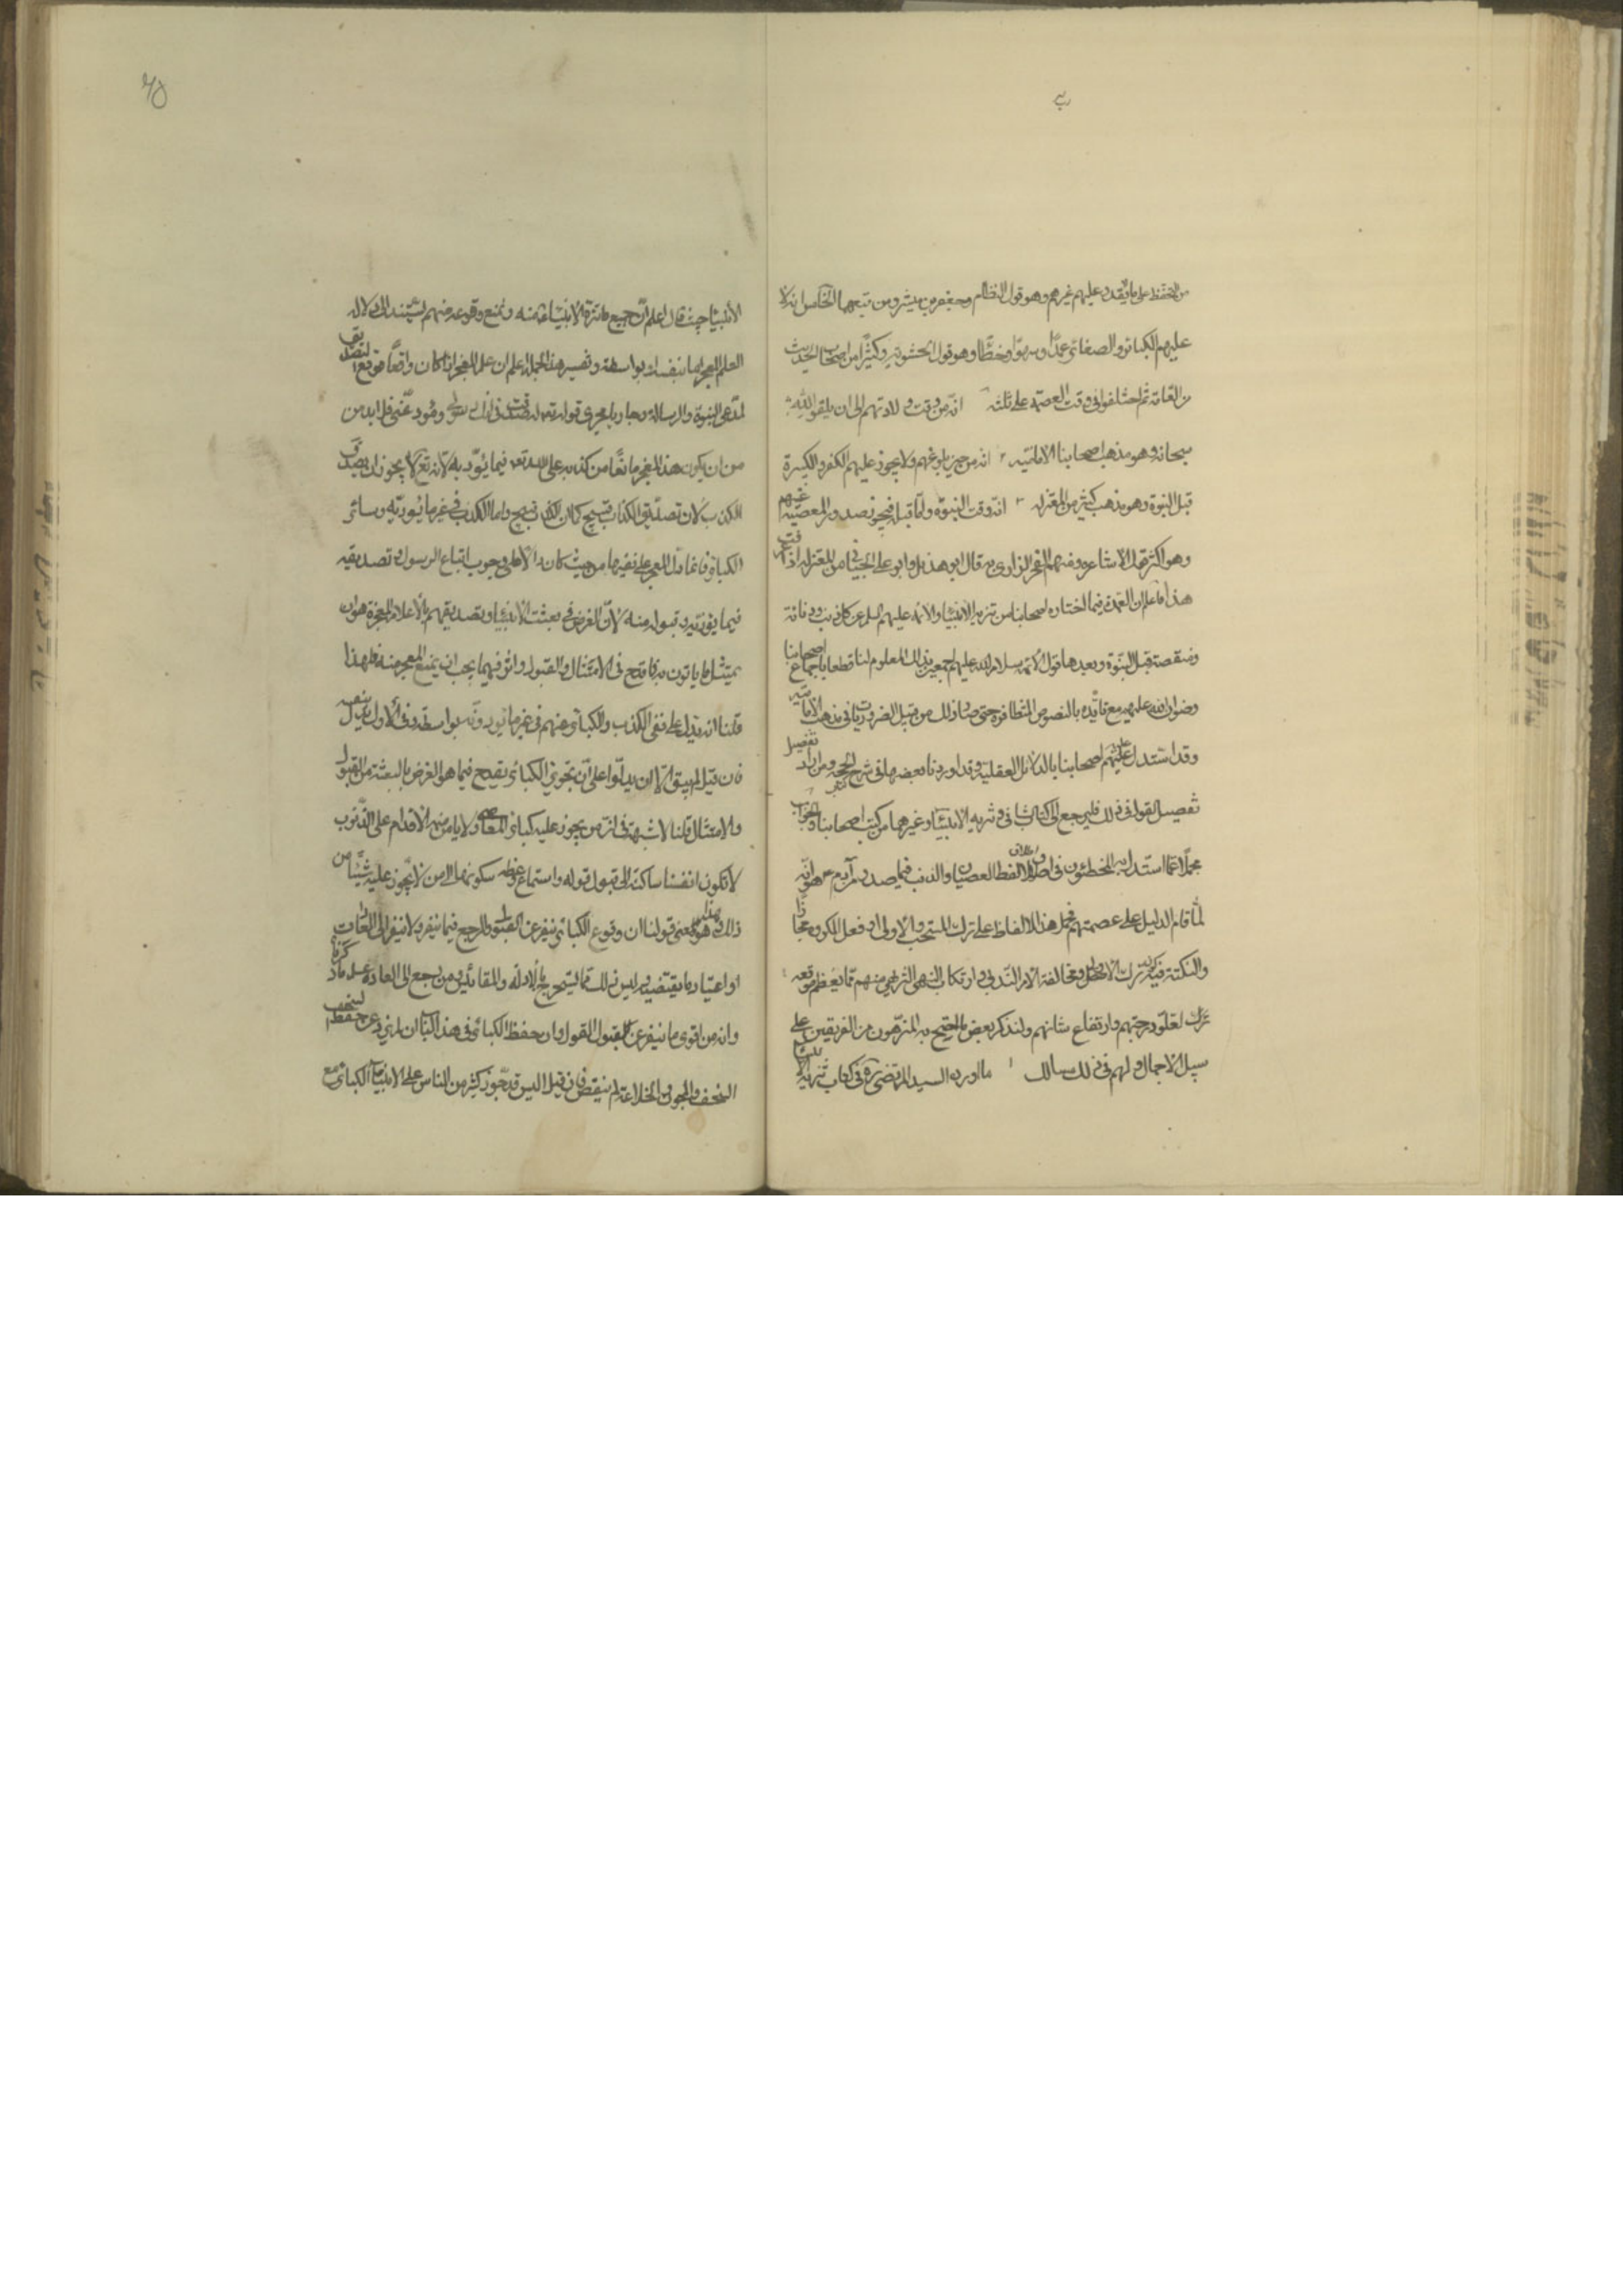 من التحفظ على ما يقدر عليهم غيرهم وهو قول النظام وجعفر بن مبشر ومن تبعهما الخامس انه لا
عليهم الكبائر والصغائر عمدًا وسهوًا وخطًا وهو قول الحشويه وكثيرًا من اصحاب الحديث
من العامة ثم اختلفوا في وقت العصمة على ثلثه انه من وقت ولادتهم الى ان يلقوا الله
سبحانه وهو مذهب اصحابنا الاماميه ٢ انه من حين بلوغهم ولا يجوز عليهم الكفر والكبيرة
قبل النبوة وهو مذهب كثير من المعتزله ٣ انه وقت النبوة واما قبله فيجوز صدور المعصية عنهم
وهو اكثر الاشاعره ومنهم الفخر الرازي وبه قال ابو هذيل وابو علي الجبائي من المعتزله اذا عرفت
هذا فاعلم ان العمدة فيما اختاره اصحابنا من تنزيه الانبياء والائمة عليهم السلم عن كل ذنب ودنائة
ومنقصة قبل النبوة وبعدها قول الائمة سلام الله عليهم اجمعين بذلك المعلوم لنا قطعا باجماع اصحابنا
رضوان الله عليهم مع تأيده بالنصوص المتظافرة حتى صار ذلك من قبيل الضروريات في مذهب الاماميه
وقد استدل عليهم اصحابنا بالدلائل العقلية وقد اوردنا بعضها في شرح الحجه ومن اراد تفصيل
تفصيل القول في ذلك فليرجع الى كتاب الشافي وتنزيه الانبياء وغيرهما من كتب اصحابنا والجواب
مجملًا عما استدل به المخطئون في اطلاق لفظ العصيان والذنب فيما صدر عن آدم هو انه
لما قام الدليل على عصمتهم فحمل هذه الالفاظ على ترك المستحب والاولى او فعل المكروه مجازا
والنكتة فيه كون ترك الاولى ومخالفة الامر الندبي وارتكاب النهي التنزيهي منهم مما يعظم موقعه
لعلو درجتهم وارتفاع شانهم ولنذكر بعض ما احتج به المنزهون من الفريقين على
سبيل الاجمال ولهم في ذلك مسالك ١ ما اورده السيد المرتضى ره في كتاب تنزيه الانبياء
الانبياء حيث قال اعلم ان جميع ما تنزه الانبياء عنه ونمنع وقوعه منهم يستند الى دلالة
العلم المعجز اما بنفسه او بواسطة وتفسير هذه الجمله اعلم ان علم المعجز اذا كان واقعًا موقع التصديق
لمدعي النبوة والرسالة وجاريا مجرى قوله تعالى له صدقت في انك رسولي ومؤد عني فلا بد من
من ان يكون هذا المعجز مانعًا من كذبه على الله تع فيما يؤديه لانه تع لا يجوز ان يصدق
الكذاب لان تصديق الكذاب قبيح كما ان الكذب قبيح واما الكذب في غير ما يؤديه وسائر
الكبائر فانما دل المعجز على نفيها من حيث كان دالا على وجوب اتباع الرسول وتصديقه
فيما يؤديه وقبوله منه لان الغرض في بعثة الانبياء وتصديقهم بالاعلام المعجزة هو ان
يمتثل ما ياتون به فما قدح في الامتثال والقبول واثر فيهما يجب ان يمنع المعجز منه فلهذا
قلنا انه يدل على نفي الكذب والكبائر عنهم في غير ما يؤدونه بواسطة وفي الاول يدل بنفسه
فان قيل لم يبق الا ان يدلوا على ان تجويز الكبائر يقدح فيما هو الغرض بالبعثة من القبول
والامتثال قلنا لا شبهة في ان من يجوز عليه كبائر المعاصي ولا يامن منه الاقدام على الذنوب
لا تكون انفسنا ساكنة الى قبول قوله واستماع وعظه سكونها الى من لا يجوز عليه شيئا من
ذلك وهذا هو معنى قولنا ان وقوع الكبائر ينفر عن القبول والمرجع فيما ينفر ولا ينفر الى العادات
او اعتبار ما يقتضيه وليس ذلك مما يستخرج بالادلة والمقائيس ومن رجع الى العادة علم ما ذكرناه
وانه من اقوى ما ينفر عن القبول القول وان حفظ الكبائر في هذا الباب ان لم يزد عن حفظ السخف
السخف والمجون والخلاعة لم ينقص فان قيل اليس قد جوز كثير من الناس على الانبياء الكبائر مع